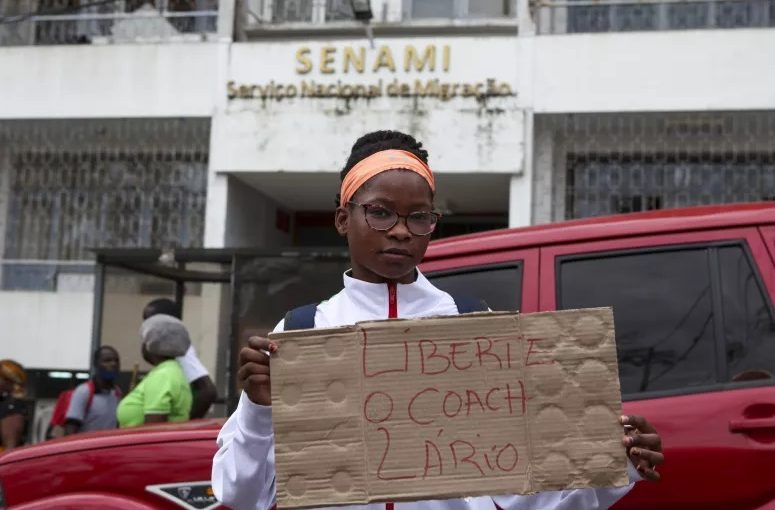 SENAMI
Serviço Nacional de Migração
LIBERTE
O COACH
LÁRIO